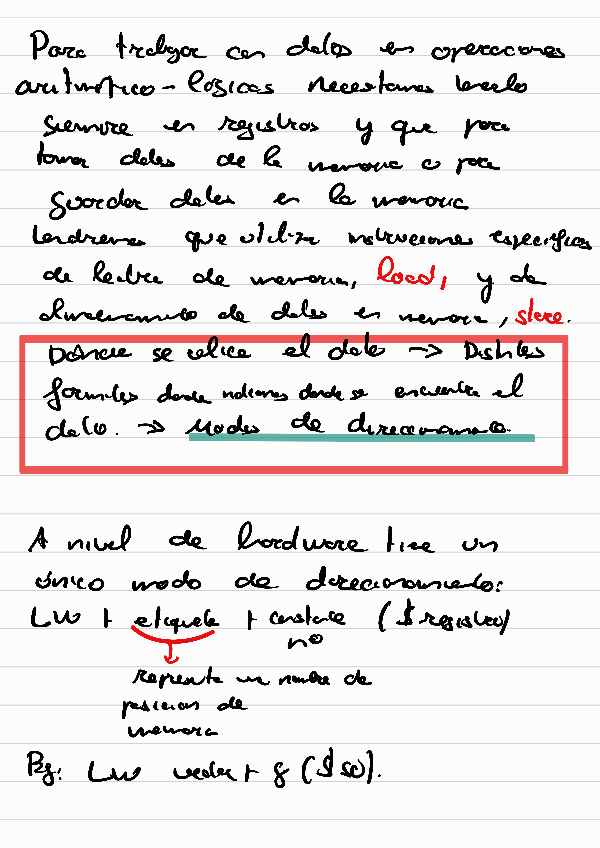 Para trabajar con datos en operaciones
aritmético-lógicas necesitamos tenerlo
siempre en registros y que para
tomar datos de la memoria o para
guardar datos en la memoria
tendremos que utilizar instrucciones específicas
de lectura de memoria, load, y de
almacenamiento de datos en memoria, store.
Dónde se ubica el dato → Distintas
formas donde indicamos donde se encuentra el
dato. → Modos de direccionamiento.
A nivel de hardware tiene un
único modo de direccionamiento:
LW + etiqueta + constante ($registro)
nº
representa un nombre de
posición de
memoria
Pej: LW vector + 8 ($s0).